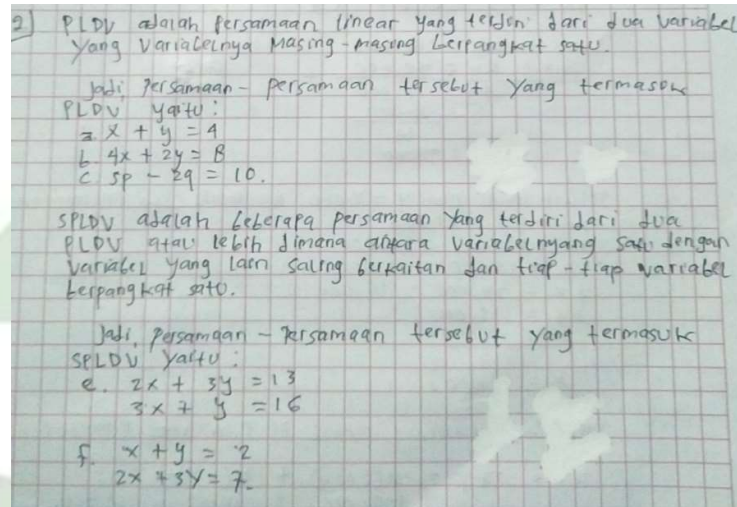 2) PLDV adalah persamaan linear yang terdiri dari dua variabel
yang variabelnya masing-masing berpangkat satu.
Jadi, persamaan - persamaan tersebut yang termasuk
PLDV yaitu :
a. x + y = 4
b. 4x + 2y = 8
c. 5p - 2q = 10.
SPLDV adalah beberapa persamaan yang terdiri dari dua
PLDV atau lebih dimana antara variabelnyang satu dengan
variabel yang lain saling berkaitan dan tiap-tiap variabel
berpangkat satu.
Jadi, persamaan - persamaan tersebut yang termasuk
SPLDV yaitu :
e. 2x + 3y = 13
3x + y = 16
f. x + y = 2
2x + 3y = 7.